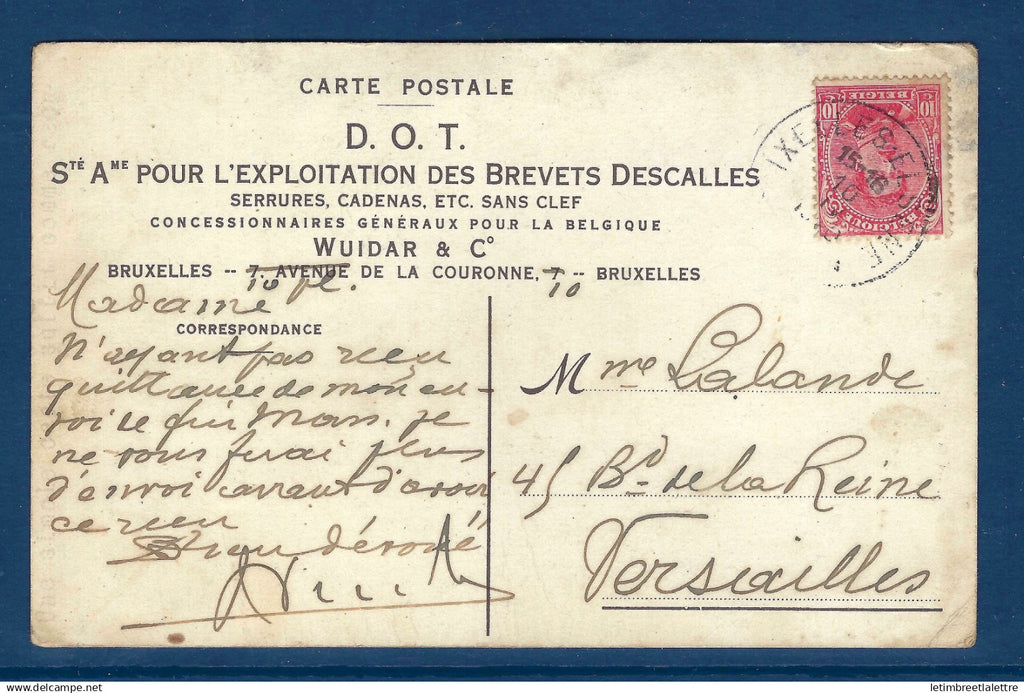 CARTE POSTALE
D. O. T.
STÉ AME POUR L'EXPLOITATION DES BREVETS DESCALLES
SERRURES, CADENAS, ETC. SANS CLEF
CONCESSIONNAIRES GÉNÉRAUX POUR LA BELGIQUE
WUIDAR & Co
BRUXELLES -- 7, AVENUE DE LA COURONNE, 7 -- BRUXELLES
10 10
Madame
CORRESPONDANCE
N'ayant pas recu
quittance de mon en-
voi de fin Mars. je
ne vous ferai plus
d'envoi avant d'avoir
ce recu
dévoué
Mme Lalande
45 Bd de la Reine
Versailles
10 BELGIE 10
BELGIQUE
IXELLES
15-16
letimbreetlalettre